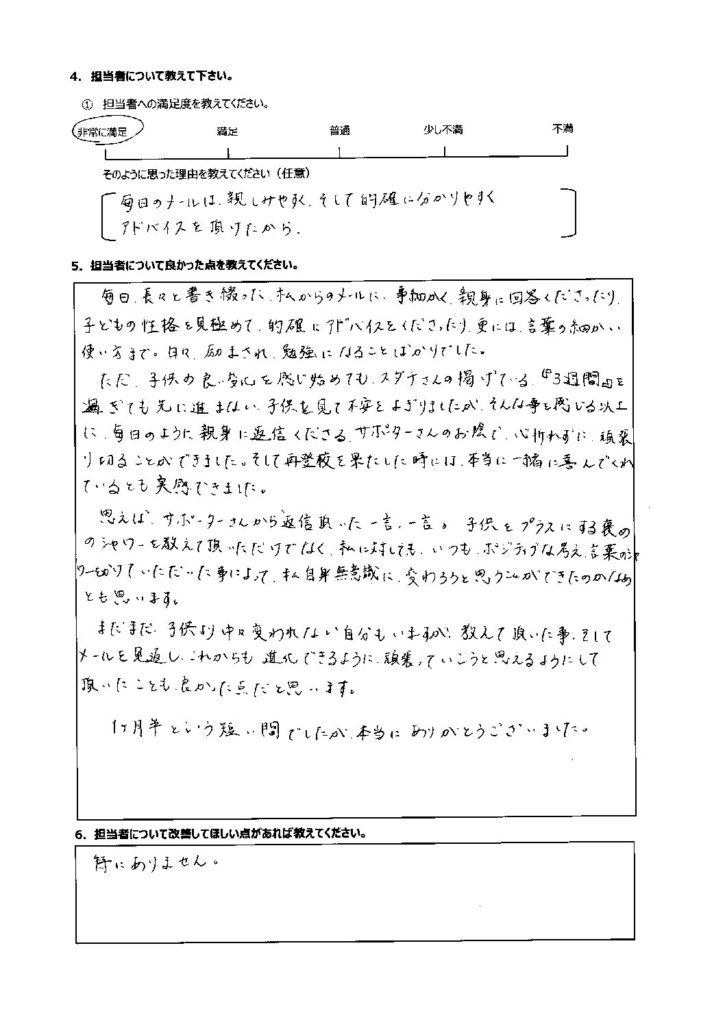 4. 担当者について教えて下さい。
① 担当者への満足度を教えてください。
非常に満足 満足 普通 少し不満 不満
そのように思った理由を教えてください（任意）
毎日のメールは、親しみやすく、そして的確に分かりやすく
アドバイスを頂けたから。
5. 担当者について良かった点を教えてください。
毎日、長々と書き綴った、私からのメールに、事細かく、親身に回答くださったり、
子どもの性格を見極めて、的確にアドバイスをくださったり、更には、言葉の細かい
使い方まで。日々、励まされ、勉強になることばかりでした。
ただ、子供の良い変化を感じ始めても、スダチさんの掲げている、『3週間』を
過ぎても先に進まない子供を見て不安もよぎりましたが、そんな事を感じる以上
に、毎日のように親身に返信くださる、サポーターさんのお陰で、心折れずに、頑張
り切ることができました。そして再登校を果たした時には、本当に一緒に喜んでくれ
ているとも実感できました。
思えば、サポーターさんから返信頂いた一言、一言。子供をプラスにする褒め
のシャワーを教えて頂いただけでなく、私に対しても、いつも、ポジティブな考え、言葉のシャ
ワーを使っていただいた事によって、私自身無意識に、変わろうと思うことができたのかなぁ
とも思います。
まだまだ、子供より中々変われない自分もいますが、教えて頂いた事、そして
メールを見返し、これからも、進化できるように、頑張っていこうと思えるようにして
頂いたことも、良かった点だと思います。
1ヶ月半という短い間でしたが、本当にありがとうございました。
6. 担当者について改善してほしい点があれば教えてください。
特にありません。